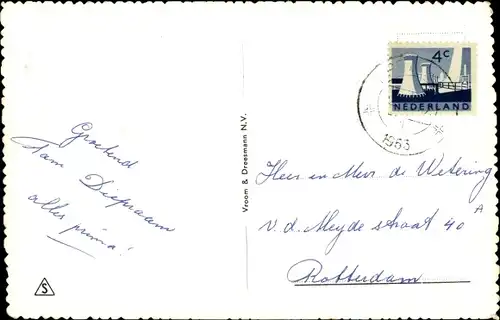 Groetend
fam Diepraam
alles prima!
S
Vroom & Dreesmann N.V.
4c
NEDERLAND
1963
Heer en Mevr. de Wetering
v. d. Meyde straat 40 A
Rotterdam